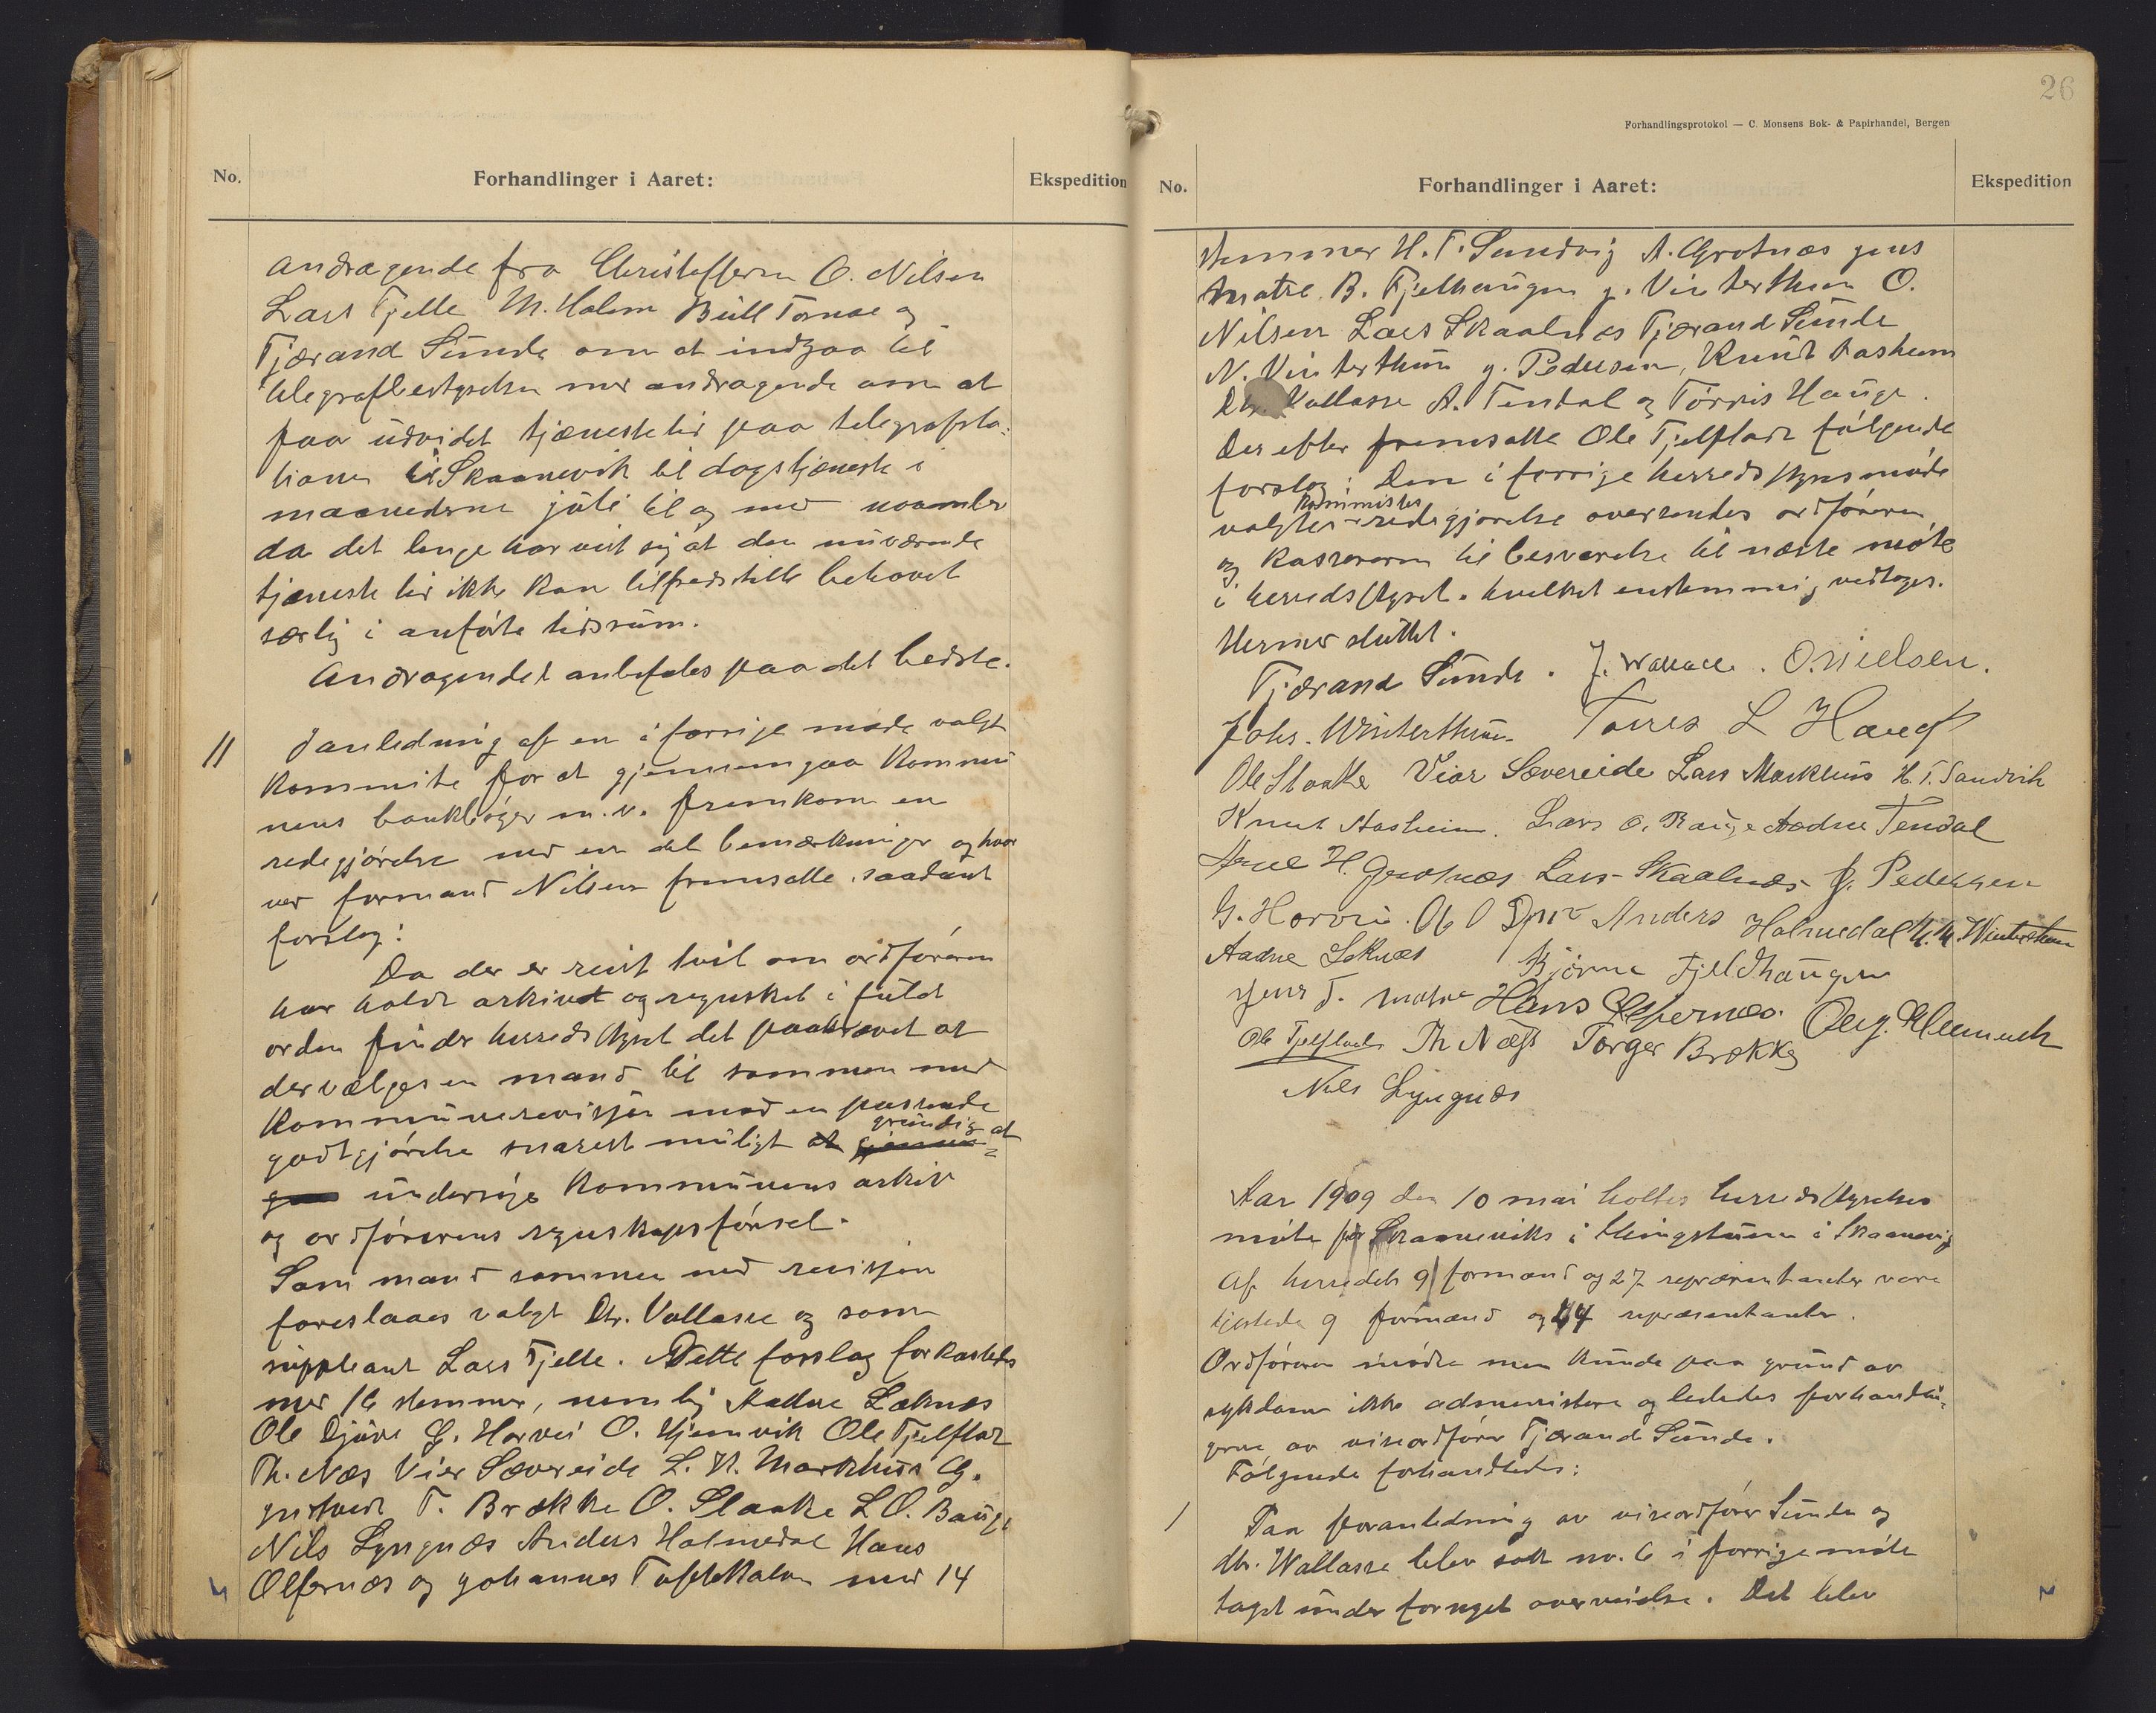 No.
Forhandlinger i Aaret:
Ekspedition
andragende fra Christoffern O. Nilsen
Lars Fjelle M. Holm Büll Tornoe og
Tjærand Sunde om at indgaa til
telegrafbestyrelsen med andragende om at
faa udvidet tjænestetid paa telegrafsta-
tionen i Skaanevik til dagstjæneste i
maanederne juli til og med november
da det lenge har vist sig at den nuværende
tjæneste tid ikke kan tilfredsstille behovet
særlig i anførte tidsrum.
Andragendet anbefales paa det bedste.
11
I anledning af en i forrige møde valgt
Kommite for at gjennemgaa Kommu
nens bankbøger m.v. fremkom en
redegjørelse med en del bemærkninger og hvor
ved formand Nilsen fremsatte saadant
forslag:
Da der er reist tvil om ordføreren
har holdt arkivet og regnskabet i fuld
orden finder herredsstyret det paakrævet at
der vælges en mand til sammen med
Kommunerevisjon mod en passende
godtgjørelse snarest muligt at grundig at
undersøge Kommunens arkiv
og ordførerens regnskapsførsel.
Som mand sammen med revisjon
foreslaaes valgt Dr. Vallasse og som
suppleant Lars Fjelle. Dette forslag forkastedes
med 16 stemmer, nemlig Aadne Læknæs
Ole Djuve G. Horvei O. Hjemvik Ole Fjelflaat
Th. Næs Vier Sævereide L. N. Markhus G.
T. Brække O. Slaake L O. Bauge
Nils Lyngnæs Anders Holmedal Hans
Ølfernæs og Johannes Toftekalven med 14
26
Forhandlingsprotokol — C. Monsens Bok- & Papirhandel, Bergen
No.
Forhandlinger i Aaret:
Ekspedition
stemmer H. T. Sandvig A. Grotnæs Jens
Matre B. Fjelhaugen J. Vinterthun O.
Nilsen Lars Skaalnæs Tjærand Sunde
N. Vinterthun J. Pedersen, Knud Aasheim
Dr. Vallasse A. Tendal og Torris Hauge.
Der efter fremsatte Ole Fjelflaat følgende
forslag: Den i forrige herredsstyresmøde
kommites
valgtes redegjørelse oversendes ordføreren
og kassereren til besvarelse til næste møte
i herredsstyret. hvilket enstemmig vedtoges.
Hermed sluttet.
Tjærand Sunde. J. Wallace. O. Nielsen.
Johs. Winterthun Torres L Haug
Ole Slaake Viar Sævereide Lars Markhus H. T. Sandvik
Knut Aasheim. Lars O. Bauge Aadne Tendal
H. Grotnæs Lars Skaalnæs J. Pedersen
G. Horvei. Anders Holmedal N. N. Winterthun
Aadne Leknæs Bjørne Fjeldhaugen
Jens T. Matre Hans Ølfernæs.
Ole Fjelflaat Th Næss Torger Brække
Nils Lyngnæs
Aar 1909 den 10 mai holtes herredsstyrelses
møte for Skaaneviks i thingstuen i Skaanevig
Af herredets 9 formænd og 27 repræsentanter vare
tilstede 9 formænd og 14 repræsentanter.
Ordføreren mødte men kunde paa grund av
sykdom ikke administere og lededes forhandlin-
gerne av viseordfører Tjærand Sunde.
Følgende forhandledes:
1
Paa foranledning av viseordfører Sunde og
Dr. Wallasse blev sak nr. 6 i forrige møte
taget under fornyet overveielse. Det blev